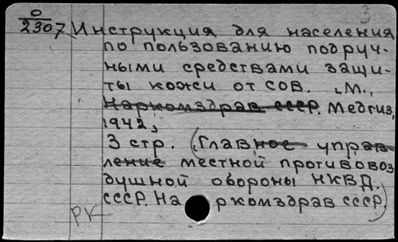 3
О
2307 Инструкция для населения
по пользованию подруч-
ными средствами защи-
ты кожи от СОВ. М.,
Наркомздрав СССР. Медгиз,
1942,
3 стр. (Главное управ-
ление местной противовоз
душной обороны НКВД.
СССР. На ркомздрав СССР)
РК